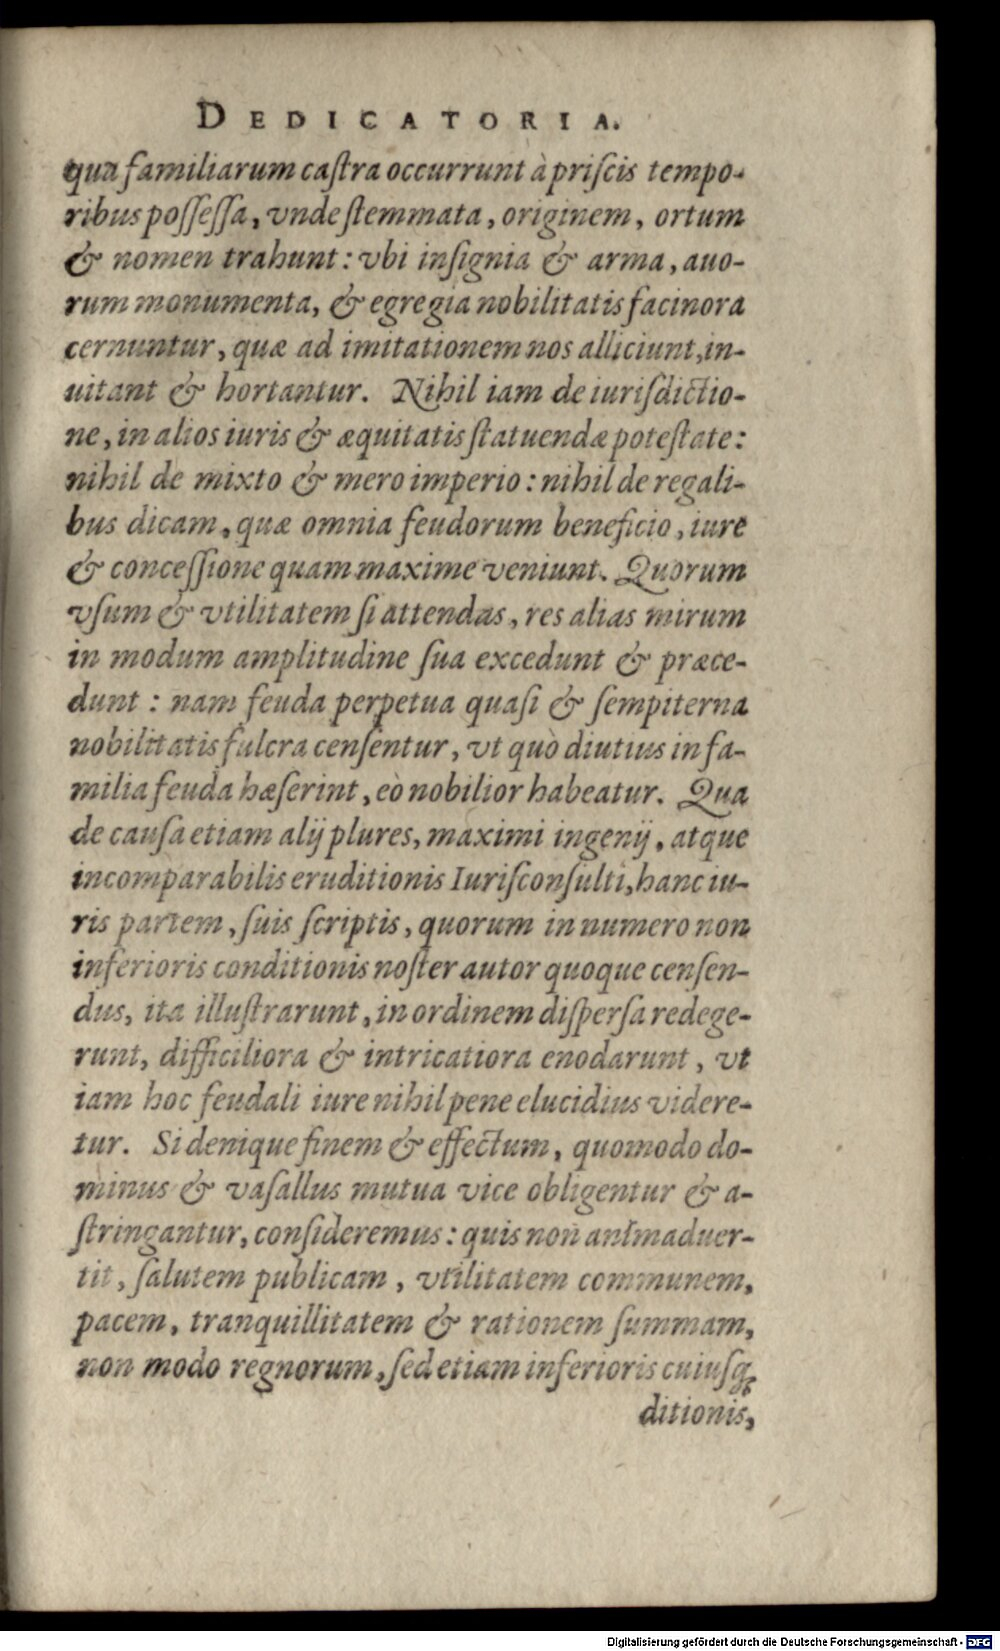 DEDICATORIA.
qua familiarum caſtra occurrunt à priſcis tempo-
ribus poſſeſſa, vnde ſtemmata, originem, ortum
& nomen trahunt: vbi inſignia & arma, auo-
rum monumenta, & egregia nobilitatis facinora
cernuntur, quæ ad imitationem nos alliciunt, in-
uitant & hortantur. Nihil iam de iuriſdictio-
ne, in alios iuris & æquitatis ſtatuendæ poteſtate:
nihil de mixto & mero imperio: nihil de regali-
bus dicam, quæ omnia feudorum beneficio, iure
& conceſſione quam maxime veniunt. Quorum
vſum & vtilitatem ſi attendas, res alias mirum
in modum amplitudine ſua excedunt & præce-
dunt: nam feuda perpetua quaſi & ſempiterna
nobilitatis fulcra cenſentur, vt quò diutius in fa-
milia feuda hæſerint, eò nobilior habeatur. Qua
de cauſa etiam alij plures, maximi ingenij, atque
incomparabilis eruditionis Iuriſconſulti, hanc iu-
ris partem, ſuis ſcriptis, quorum in numero non
inferioris conditionis noſter autor quoque cenſen-
dus, ita illuſtrarunt, in ordinem diſperſa redege-
runt, difficiliora & intricatiora enodarunt, vt
iam hoc feudali iure nihil pene elucidius videre-
tur. Si denique finem & effectum, quomodo do-
minus & vaſallus mutua vice obligentur & a-
ſtringantur, conſideremus: quis non animaduer-
tit, ſalutem publicam, vtilitatem communem,
pacem, tranquillitatem & rationem ſummam,
non modo regnorum, ſed etiam inferioris cuiuſq;
ditionis,
Digitalisierung gefördert durch die Deutsche Forschungsgemeinschaft - DFG